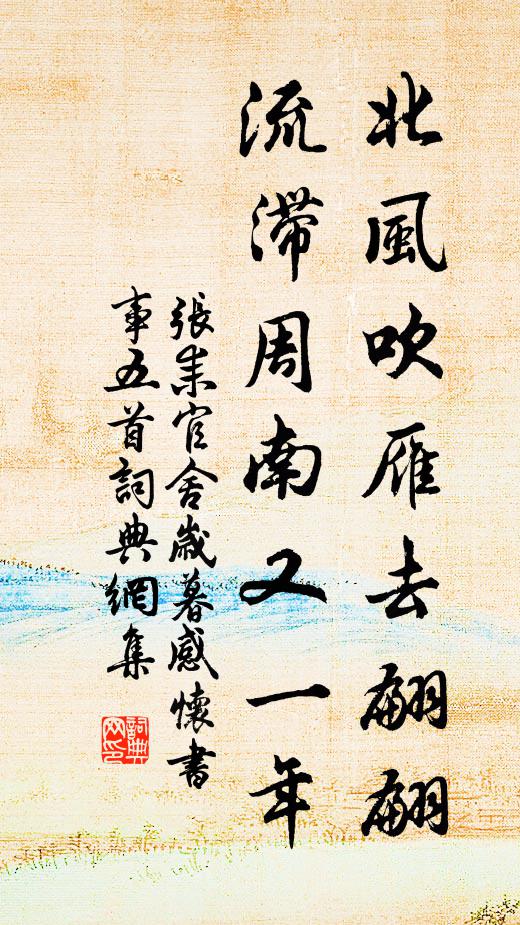 北風吹雁去翩翩
流滯周南又一年
張耒官舍歲暮感懷書
事五首詞典網集
詞典
网印